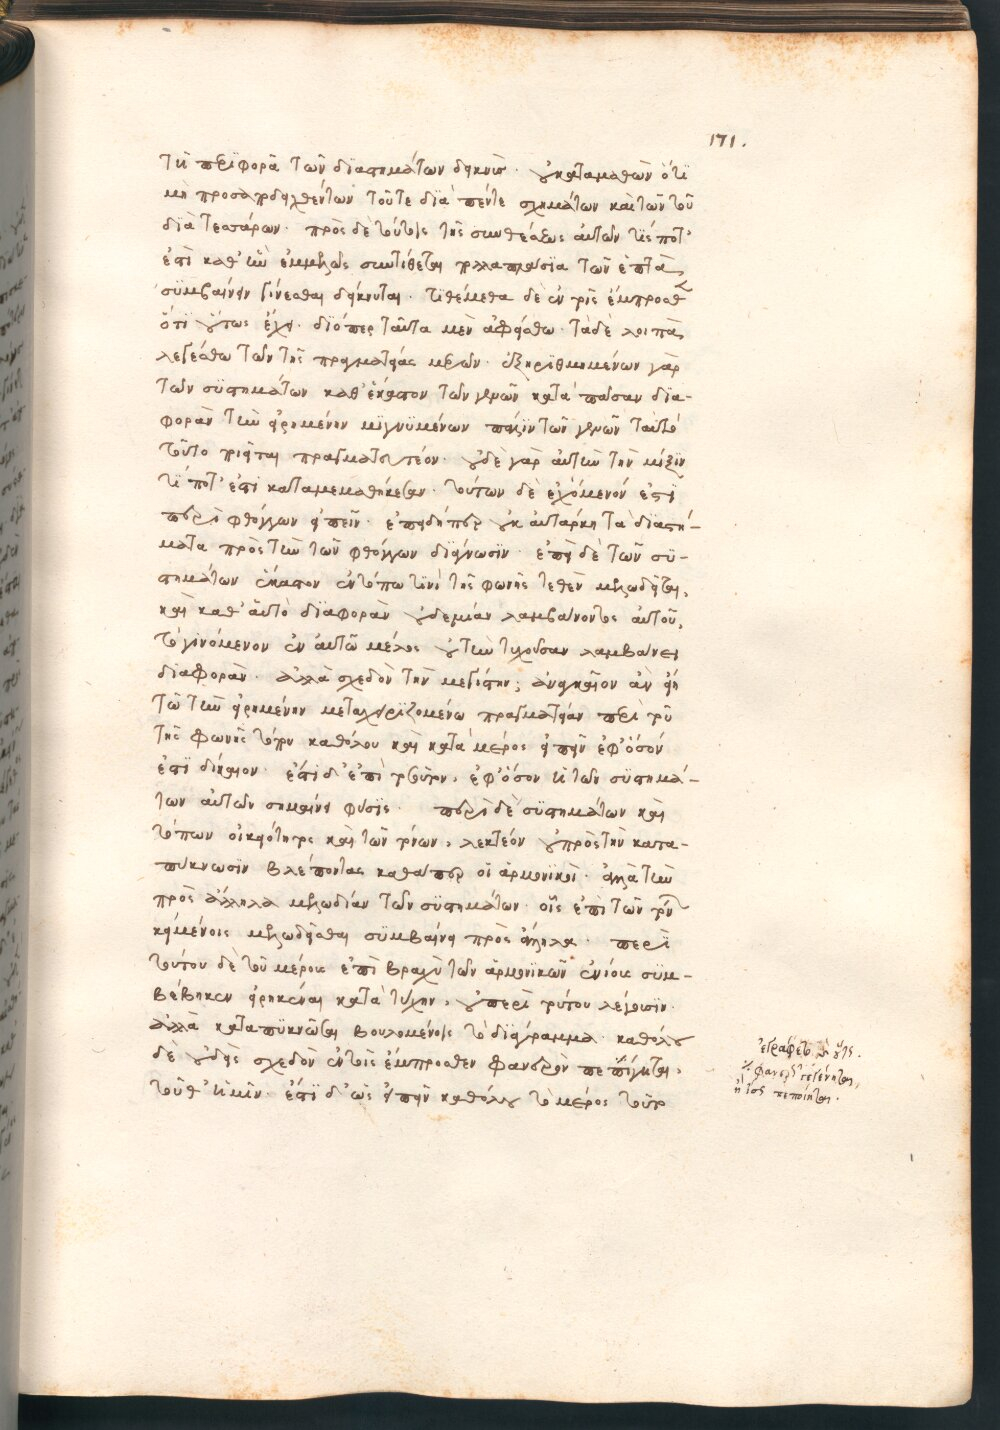 171.
τῆ περϊφορᾶ τῶν διαστημάτων δεικνὺς. οὐ καταμαθὼν ὅτι
μὴ προσαποδειχθέντων τοῦτε διὰ πέντε σχημάτων καὶ τῶν τοῦ
διὰ τεσσάρων. πρὸς δὲ τούτοις τῆς συνθέσεως αὐτῶν τίς ποτ'
ἐστὶ καθ' ἣν ἐμμελῶς συντίθεται πολλαπλασία τῶν ἑπτὰ
συμβαίνειν γίνεσθαι δείκνυται. τιθέμεθα δὲ ἐν τοῖς ἔμπροσθεν
ὅτι οὕτως ἔχει. διόπερ ταῦτα μὲν ἀφείσθω. τὰ δὲ λοιπὰ
λεγέσθω τῶν τῆς πραγματείας μερῶν. ἐξηριθμημένων γὰρ
τῶν συστημάτων καθ' ἕκαστον τῶν γενῶν κατὰ πᾶσαν δια-
φορὰν τὴν εἰρημένην μιγνυμένων πάλιν τῶν γενῶν ταὐτὸ
τοῦτο ποιῆται πραγματευτέον. οὐδὲ γὰρ αὐτὴν τὴν μίξιν
τί ποτ' ἐστὶ καταμεμαθήκεσαν. τούτων δὲ ἐχόμενόν ἐστι
περὶ φθόγγων εἰπεῖν. ἐπειδήπερ οὐκ αὐτάρκη τὰ διαστή-
ματα πρὸς τὴν τῶν φθόγγων διάγνωσιν. ἐπεὶ δὲ τῶν συ-
στημάτων ἕκαστον ἐν τόπω τινὶ τῆς φωνῆς τεθὲν μελωδεῖται,
καὶ καθ' αὑτὸ διαφορὰν οὐδεμίαν λαμβάνοντος αὐτοῦ,
τὸ γινόμενον ἐν αὐτῶ μέλος οὐ τὴν τυχοῦσαν λαμβάνει
διαφορὰν. ἀλλὰ σχεδὸν τὴν μεγίστην, ἀναγκαῖον ἂν εἴη
τῶ τὴν εἰρημένην μεταχειριζομένω πραγματείαν περὶ τοῦ
τῆς φωνῆς τόπου καθόλου καὶ κατὰ μέρος εἰπεῖν ἐφ' ὅσόν
ἐστι δίκαιον. ἔστι δ' ἐπὶ τοσοῦτον, ἐφ' ὅσον ἡ τῶν συστημά-
των αὐτῶν σημαίνει φύσις. περὶ δὲ συστημάτων καὶ
τόπων οἰκειότητος καὶ τῶν τόνων, λεκτέον οὐ πρὸς τὴν κατα-
πύκνωσιν βλέποντας καθάπερ οἱ ἁρμονικοὶ. ἀλλὰ τὴν
πρὸς ἄλληλα μελωδίαν τῶν συστημάτων. οἷς ἐπὶ τῶν τόνων
κειμένοις μελωδεῖσθαι συμβαίνει πρὸς ἄλληλα. περὶ
τούτου δὲ τοῦ μέρους ἐπὶ βραχὺ τῶν ἁρμονικῶν ἐνίοις συμ-
βέβηκεν εἰρηκέναι κατὰ τύχην, οὐ περὶ τούτου λέγουσιν.
ἀλλὰ καταπυκνῶσαι βουλομένοις τὸ διάγραμμα. καθόλου
δὲ οὐδεὶς σχεδὸν ἐν τοῖς ἔμπροσθεν φανερὸν πεποίηται,
τοῦθ' ἡμῖν. ἔστι δ' ὡς εἰπεῖν καθόλου τὸ μέρος τοῦτο
ἐγράφετο
φανερὸν γεγένηται,
πεποίηται.